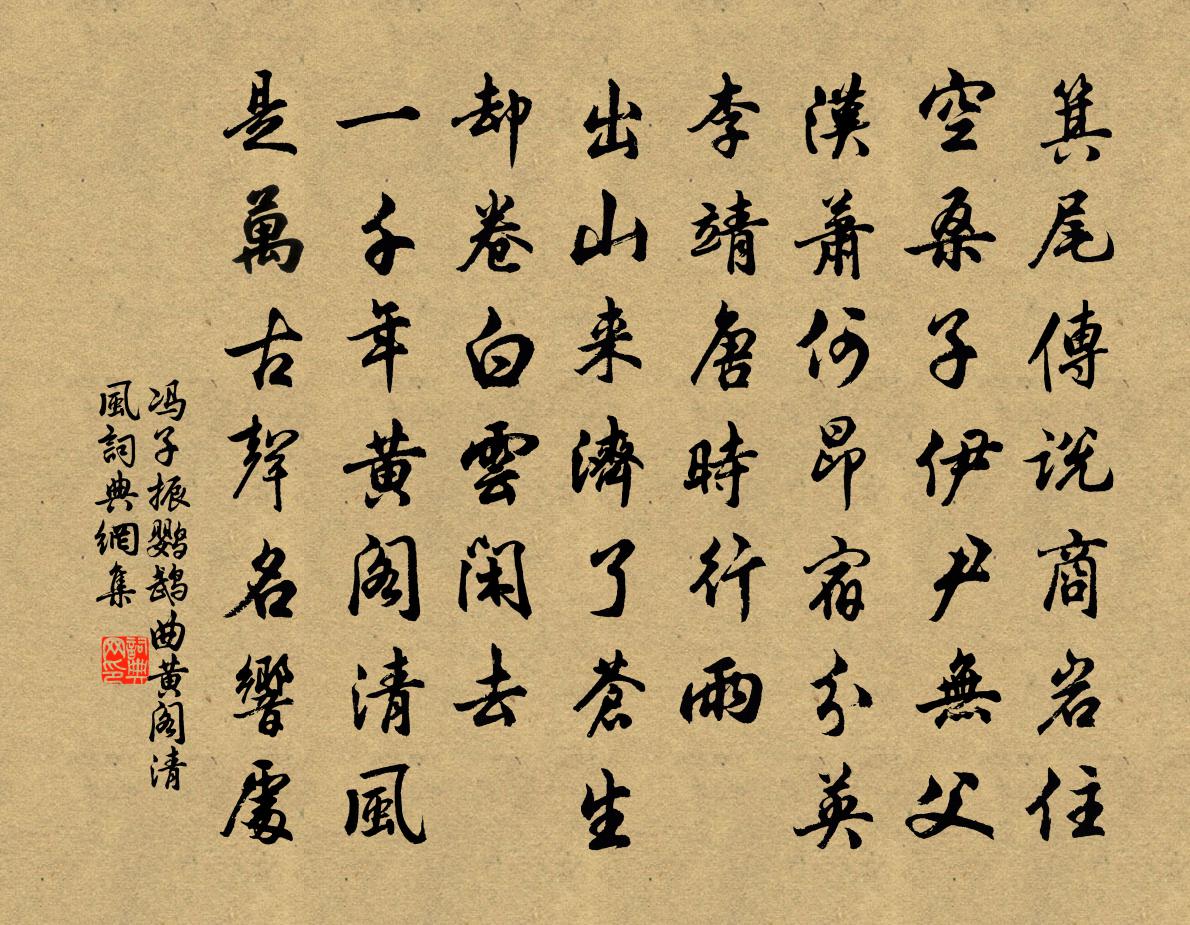 箕尾傳說商岩住
空桑子伊尹無父
漢蕭何昂宿分英
李靖唐時行雨
出山来濟了蒼生
却卷白雲閑去
一千年黄閣清風
是萬古聲名響處
冯子振鹦鵡曲黄閣清
風詞典網集
詞典网印